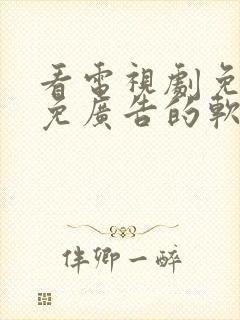 看電視劇免
免廣告的軟
伴卿一醉